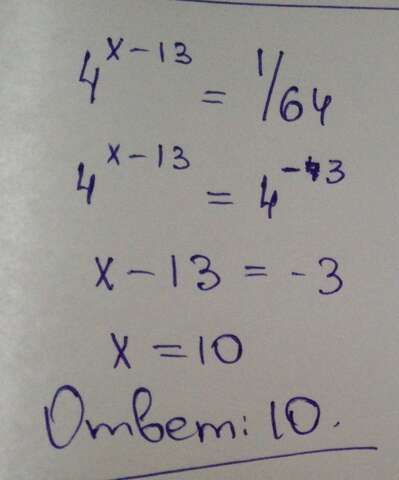 4^(x-13) = 1/64
4^(x-13) = 4^(-3)
x - 13 = -3
x = 10
Ответ: 10.